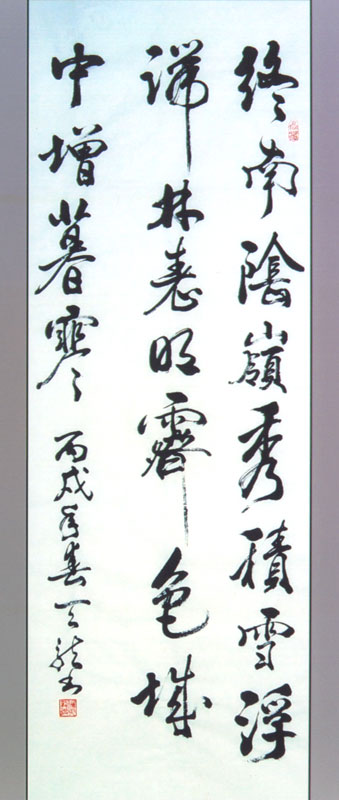 終南陰嶺秀積雪浮
端林表明霽色城
中增暮寒 丙戌年春天龍书